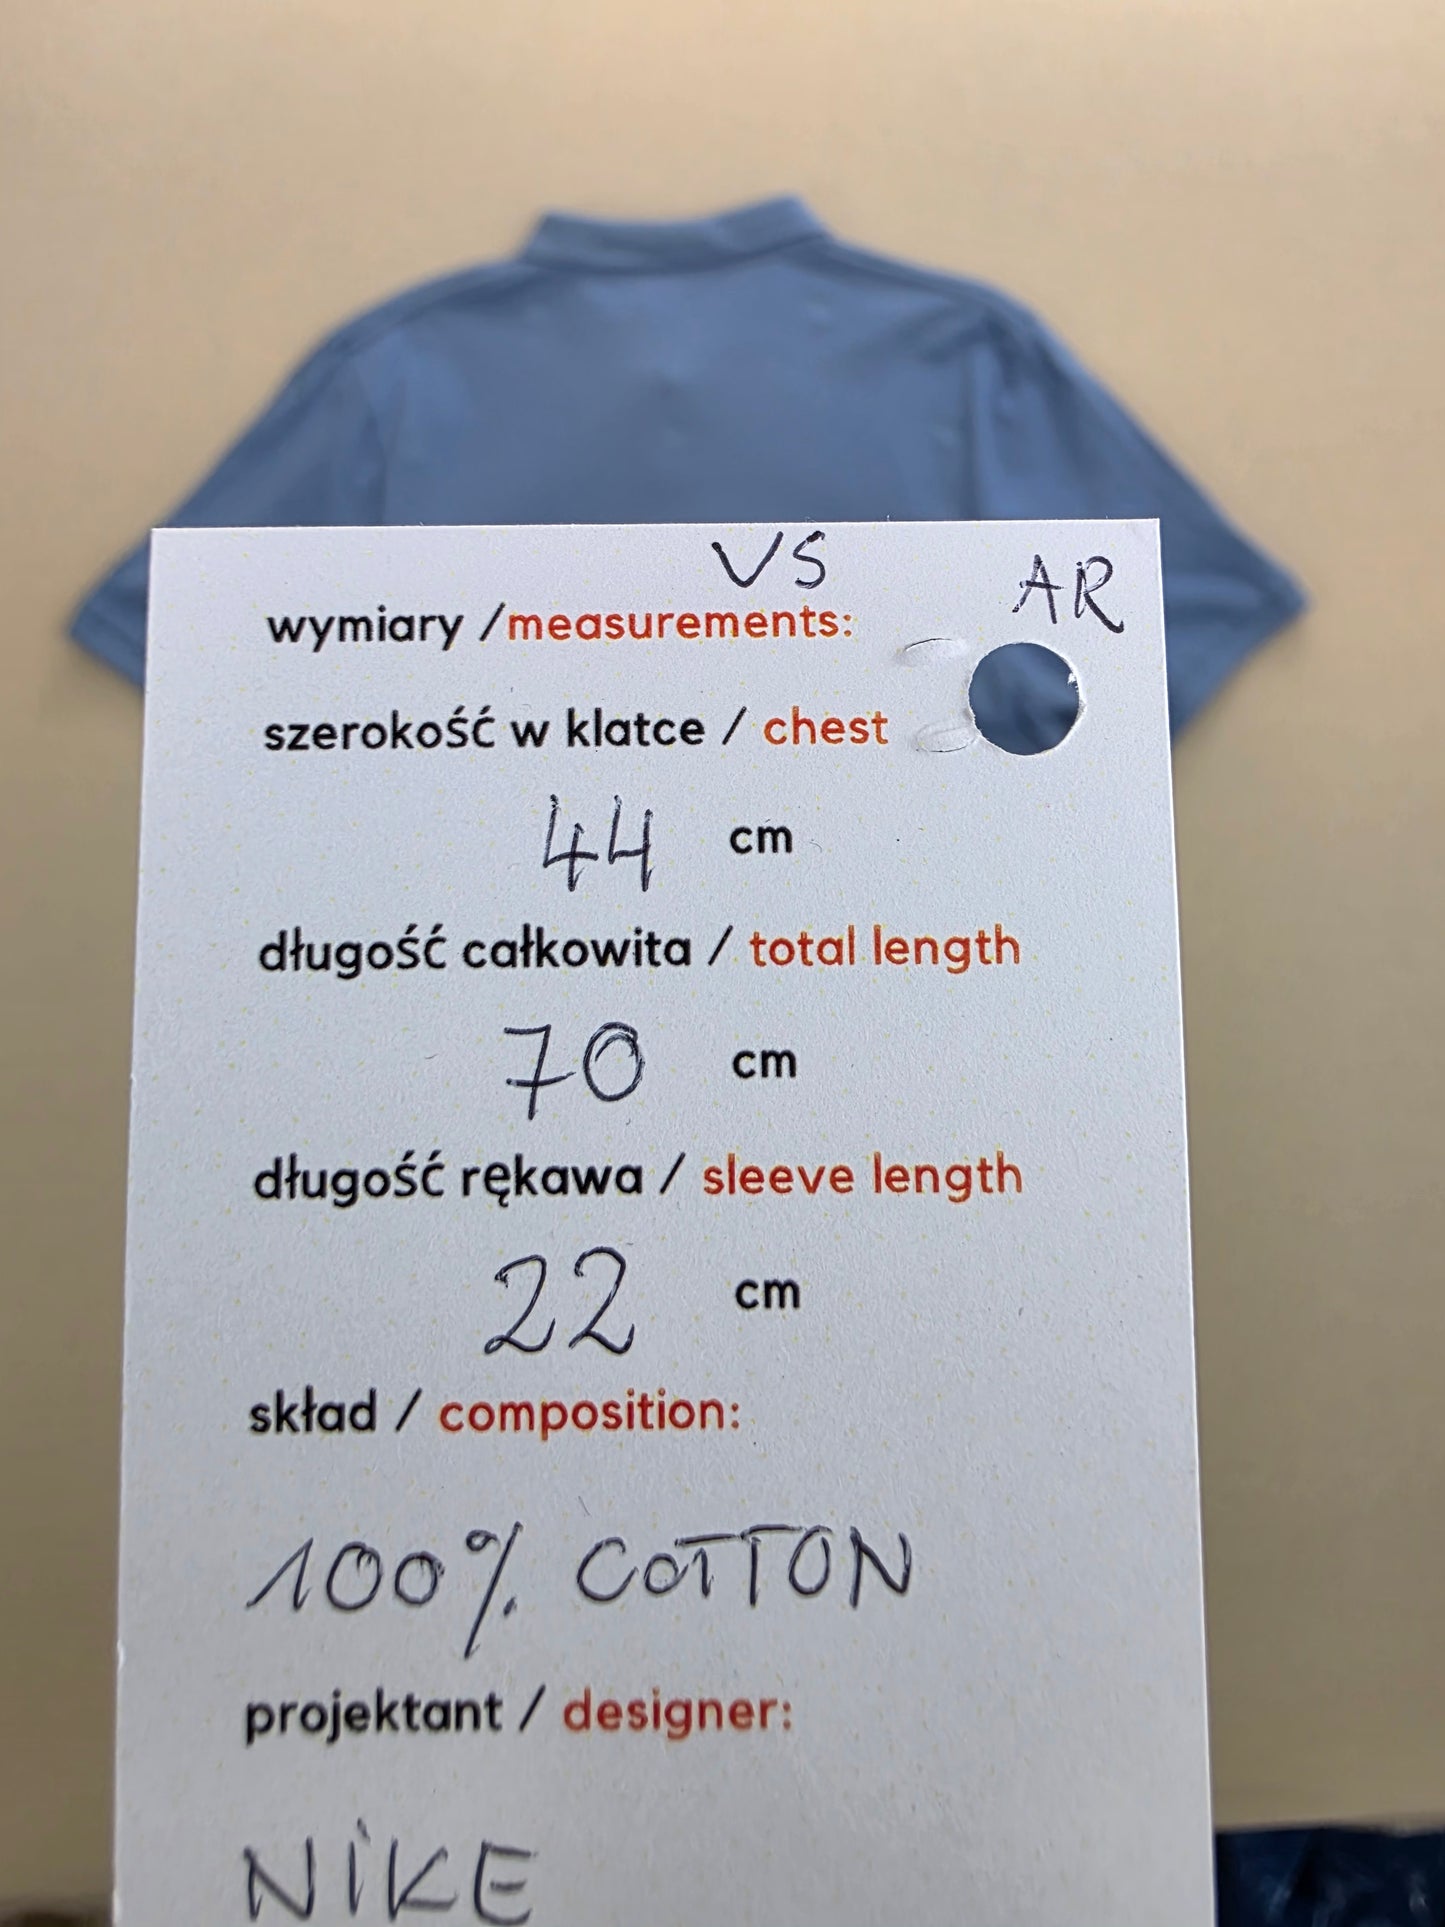 VS
AR
wymiary /measurements:
szerokość w klatce / chest
44 cm
długość całkowita / total length
70 cm
długość rękawa / sleeve length
22 cm
skład / composition:
100% COTTON
projektant / designer:
NIKE